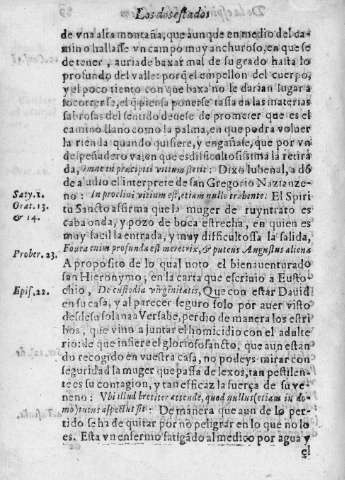 Los dos estados
de vna alta montaña, que aunque en medio del ca-
mino hallasse vn campo muy anchuroso, en que se
detener, auria de baxar mal de su grado hasta lo
profundo del valle: porq̃ el empellon del cuerpo,
y el poco tiento con que baxa no le darian lugar a
socorrerse, el q̃ piensa ponerse tassa en las materias
sabrosas del sentido deuese de prometer que es el
camino llano como la palma, en que podra voluer
la rienda quando quisiere, y engañase, que por vn
despeñadero va, en que es dificultosissima la retira
da, omne in præcipiti vitium stetit: Dixo Iuuenal, a dõ
de aludio el interprete de san Gregorio Nazianze-
Saty. 1.
Orat. 13.
& 14.
no: In procliui vitium est, etiam nullo trahente. El Spiri
tu Sancto affirma que la muger de ruyn trato es
caba onda, y pozo de boca estrecha, en quien es
muy facil la entrada, y muy dificultosa la salida,
Prober. 23.
Fouea enim profunda est meretrix, & puteus Angustus aliena
A proposito de lo qual noto el bienauenturado
san Hieronymo, en la carta que escriuio a Eusto-
Epis. 22.
chio, De custodia virginitatis, Que con estar Dauid
en su casa, y al parecer seguro solo por auer visto
desde so solana a Versabe, perdio de manera los estri
bos, que vino a juntar el homicidio con el adulte
rio: de que infiere el glorioso sancto, que aun estan
do recogido en vuestra casa, no podeys mirar con
seguridad la muger que passa de lexos, tan pestilen
te es su contagion, y tan eficaz la fuerça de su ve
neno: Vbi illud breuiter attende, quod nullus (etiam in do-
mo) tutus aspectus sit: De manera que aun de lo per-
tido se ha de quitar por no peligrar en lo que no lo
es. Esta vn enfermo fatigãdo al medico por agua y
el